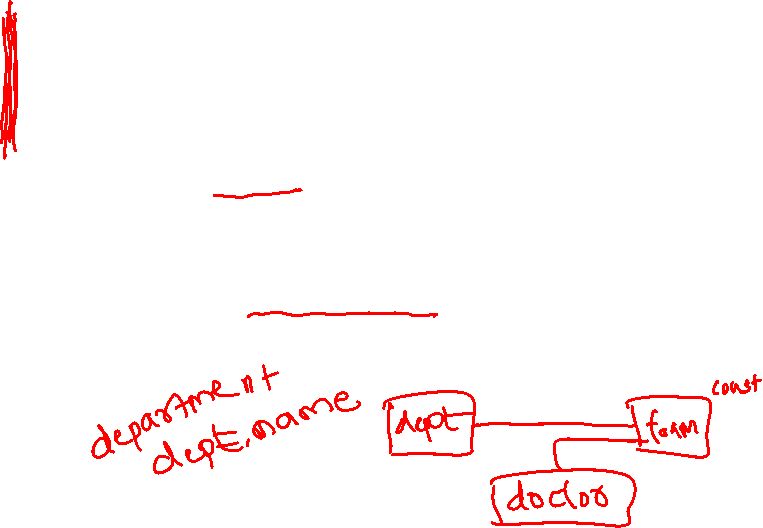 department
dept.name
dept
form
const
doctor